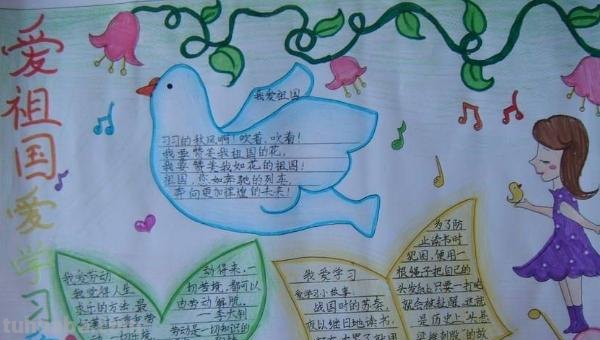 爱祖国爱学习
我爱祖国
习习的秋风啊！吹着、吹着！
我要赞美我祖国的花，
我要赞美我如花的祖国！
祖国，您如奔驰的列车
奔向更加辉煌的未来！
我爱劳动
我觉得人生
乐的方法，最
动得来，一
切苦境，都可以
由劳动解脱。
—李大钊
劳动是一切知识的
我爱学习
爱学习小故事
战国时的苏秦，
夜以继日地读书，
为了防
止读书时
犯困，便用一
根绳子把自己的
头发
上，只要一打盹
就会被扯醒，这就
是历史上"头悬
梁锥刺股"的故
tuhuabao